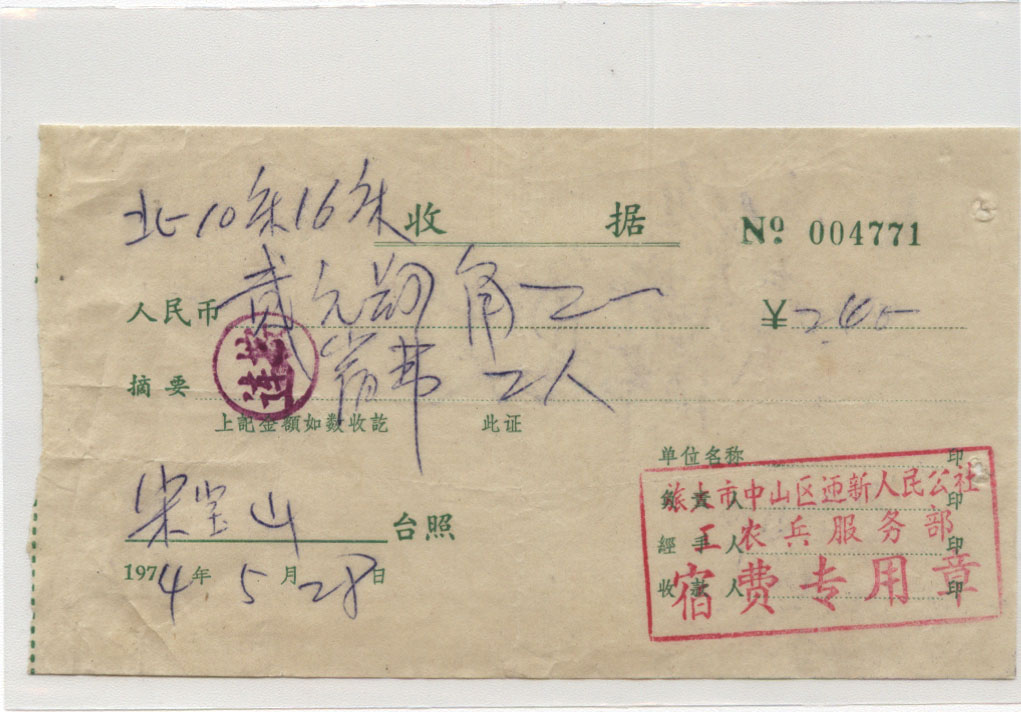 北-10床16床
收 据
№ 004771
人民币 贰元 角
¥ 2.40
摘要 宿费 2人
上記金額如数收訖 此证
宋宝山 台照
1974年5月28日
单位名称 印
人 印
經手人 印
收款人 印
旅大市中山区迎新人民公社
工农兵服务部
宿费专用章